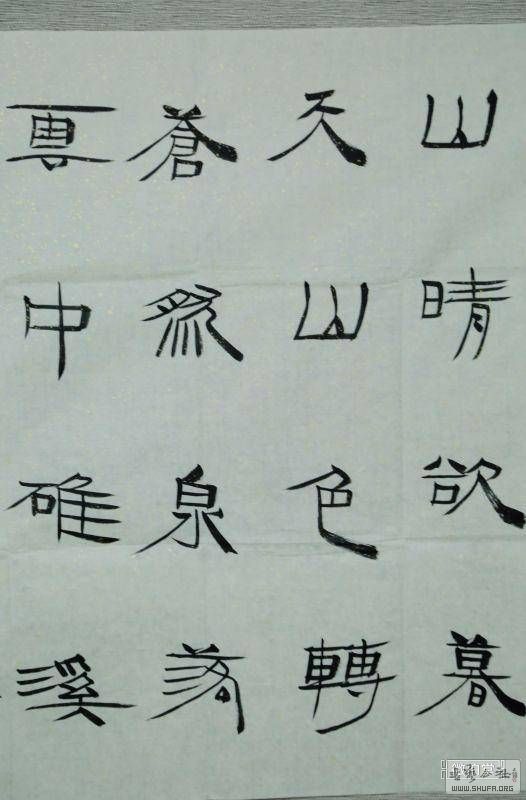 山晴欲暮
天山色轉
蒼然泉落
中碓溪
WWW.SHUFA.ORG